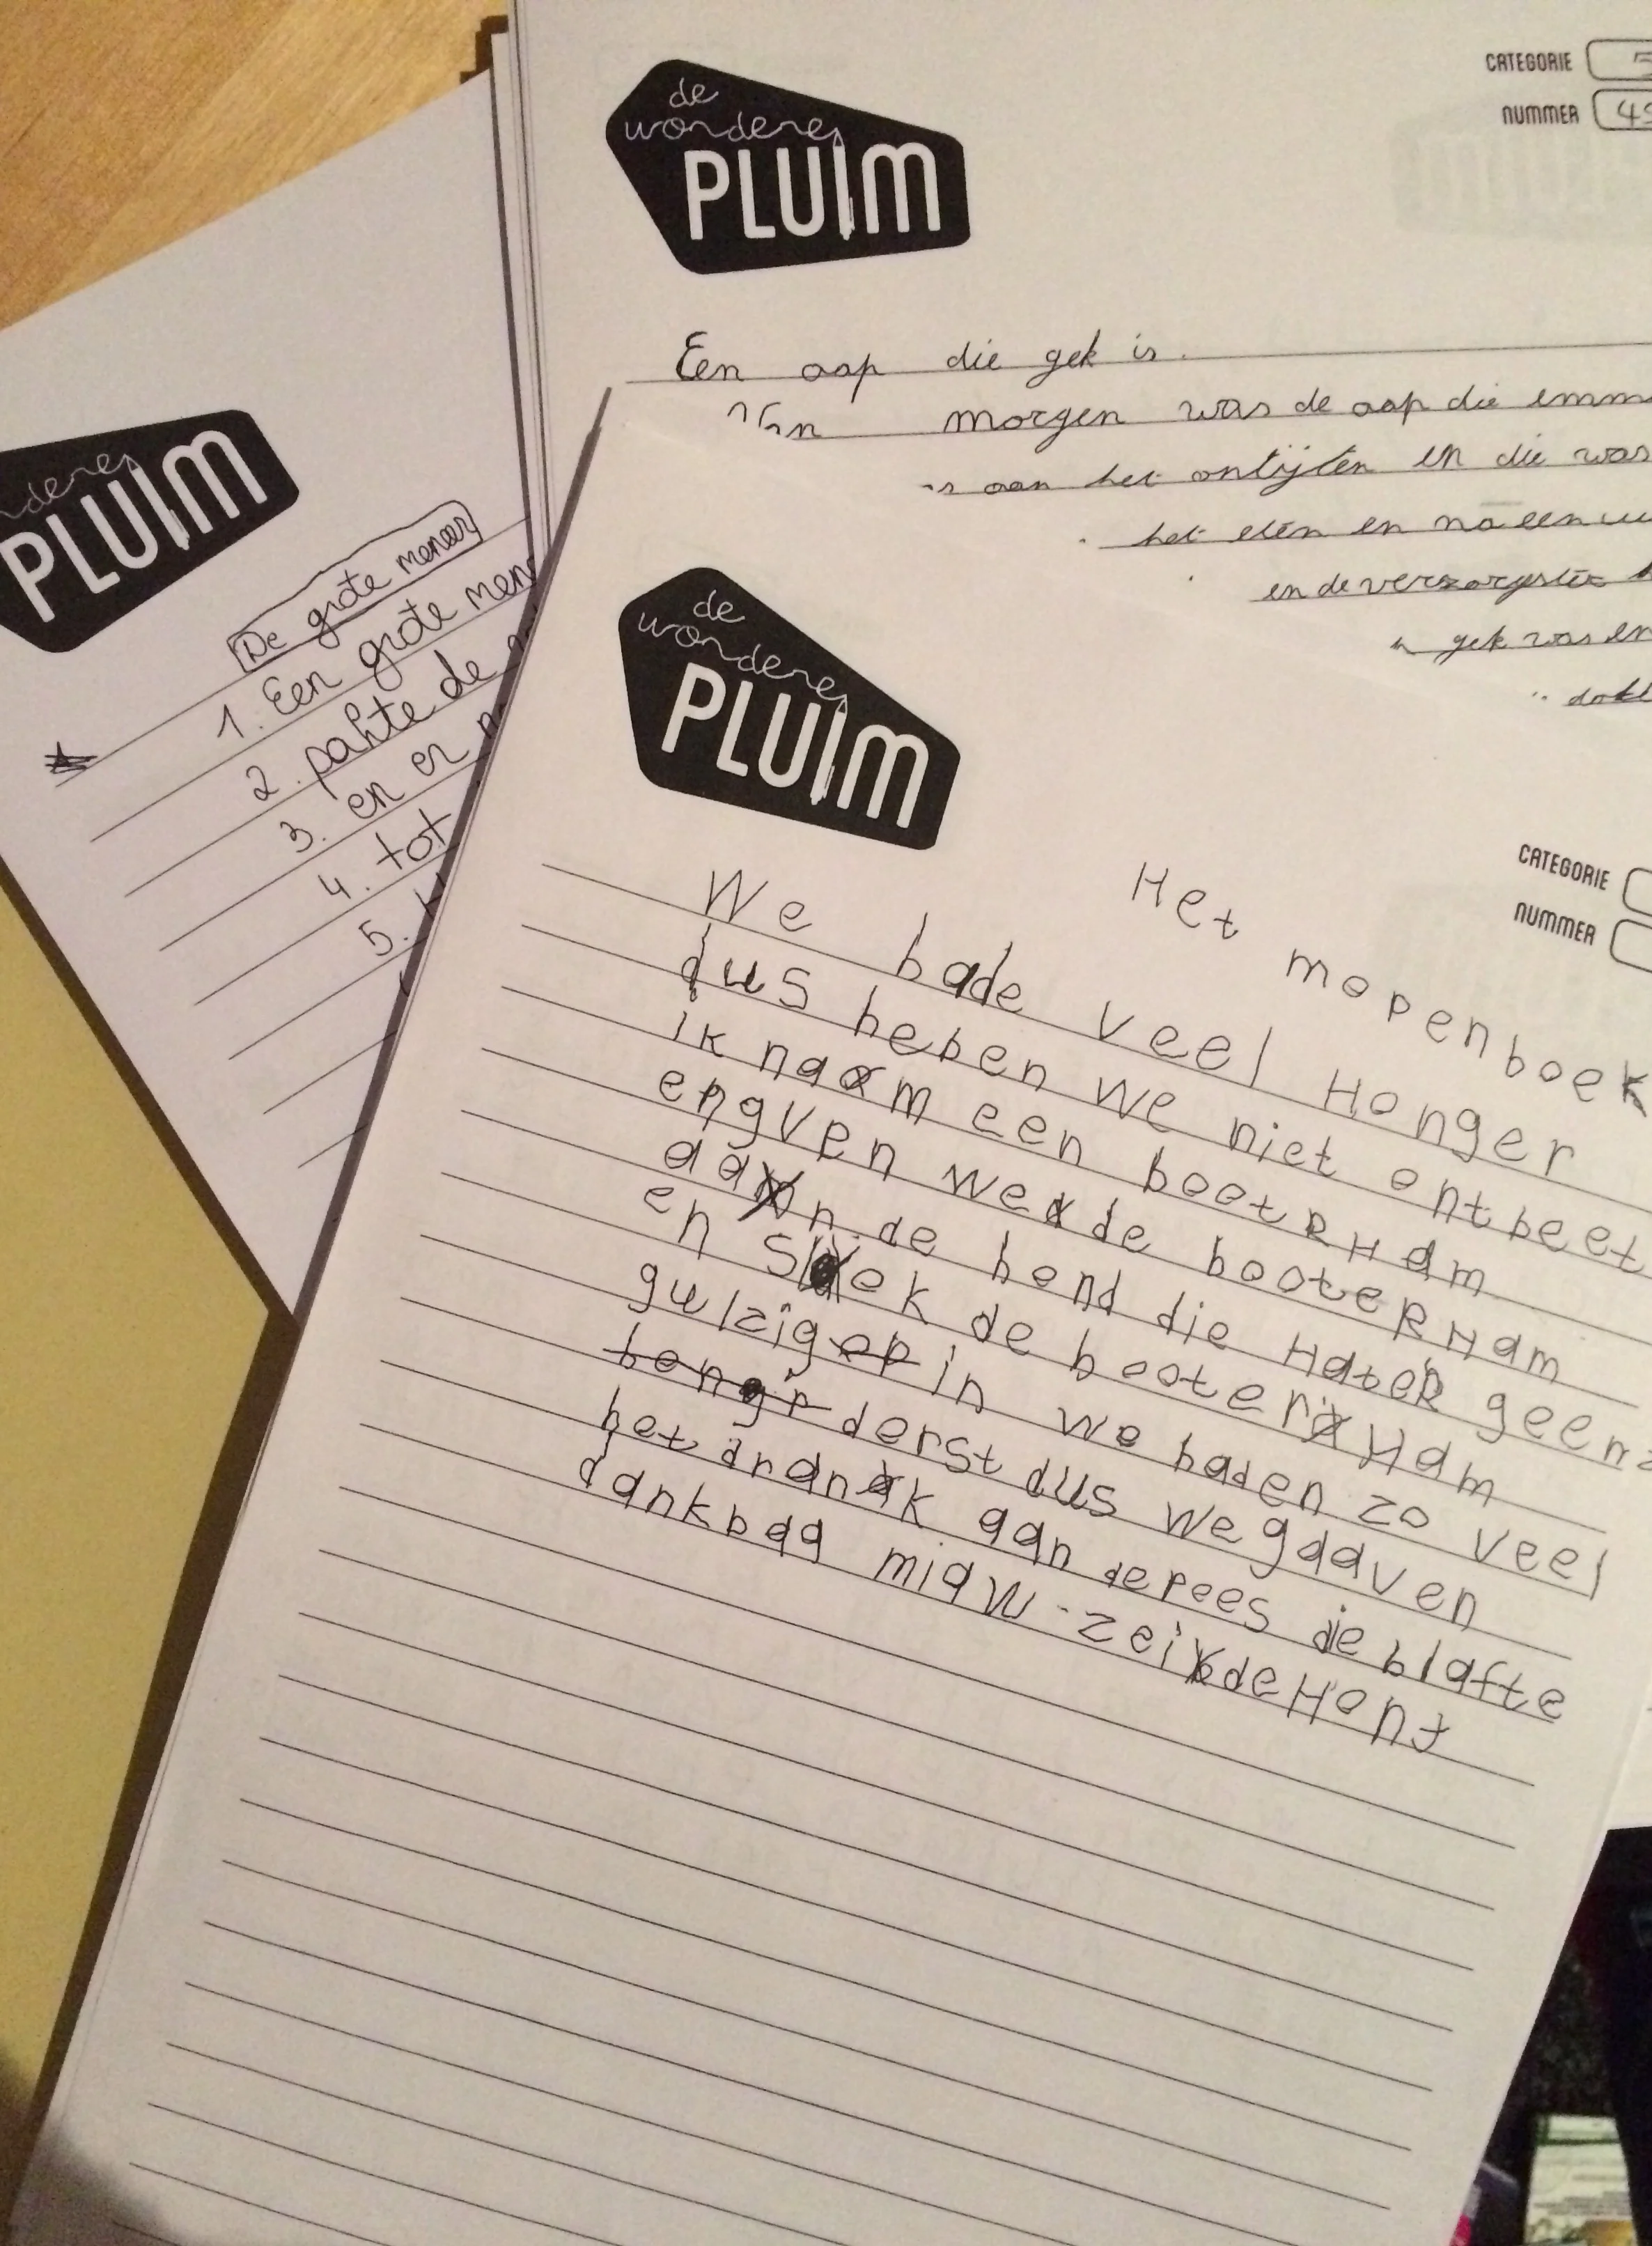 de
wondere
PLUIM
CATEGORIE 5
NUMMER
Een aap die gek is.
Van morgen was de aap die
aan het ontijten en die was
het eten en na een
en de verzorgster
gek was en
dere
PLUIM
De grote meneer
1. Een grote
2. pahte de
3. en er
4. tot
5.
de
wondere
PLUIM
CATEGORIE
NUMMER
Het mopenboek
We hade veel Honger
dus heben we niet ontbeet
ik naam een bootRHam
engven we de booteRHam
aan de hond die Hater geen
en slok de booterHam
gulzig op in we haden zo veel
hongr derst dus we gaaven
het drank aan de pees die blafte
dankbaa miaw - zei de Hont